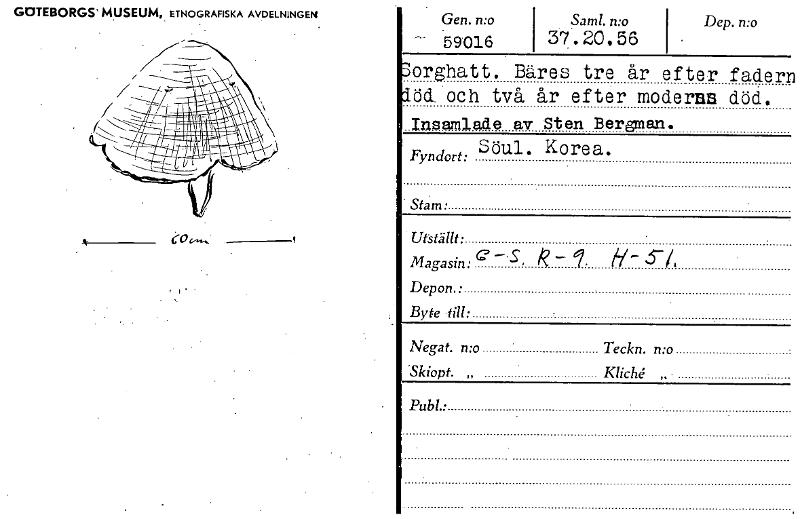 GÖTEBORGS MUSEUM, ETNOGRAFISKA AVDELNINGEN
60cm
Gen. n:o Saml. n:o Dep. n:o
59016 37.20.56
Sorghatt. Bäres tre år efter fadern
död och två år efter moderns död.
Insamlade av Sten Bergman.
Fyndort: Söul. Korea.
Stam:
Utställt:
Magasin: G-S. R-9. H-51.
Depon.:
Byte till:
Negat. n:o Teckn. n:o
Skiopt. „ Kliché „
Publ.: